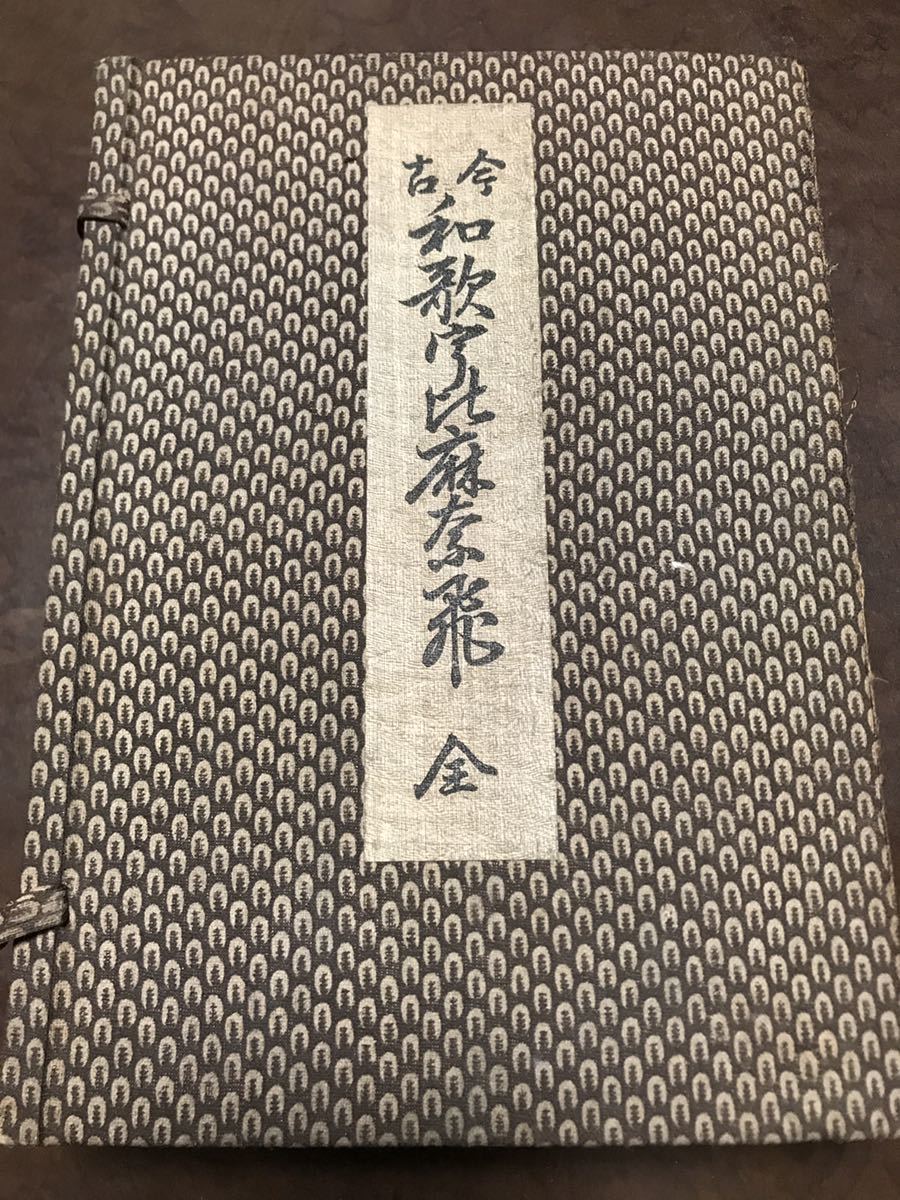 今古
和歌宇比麻奈飛
全